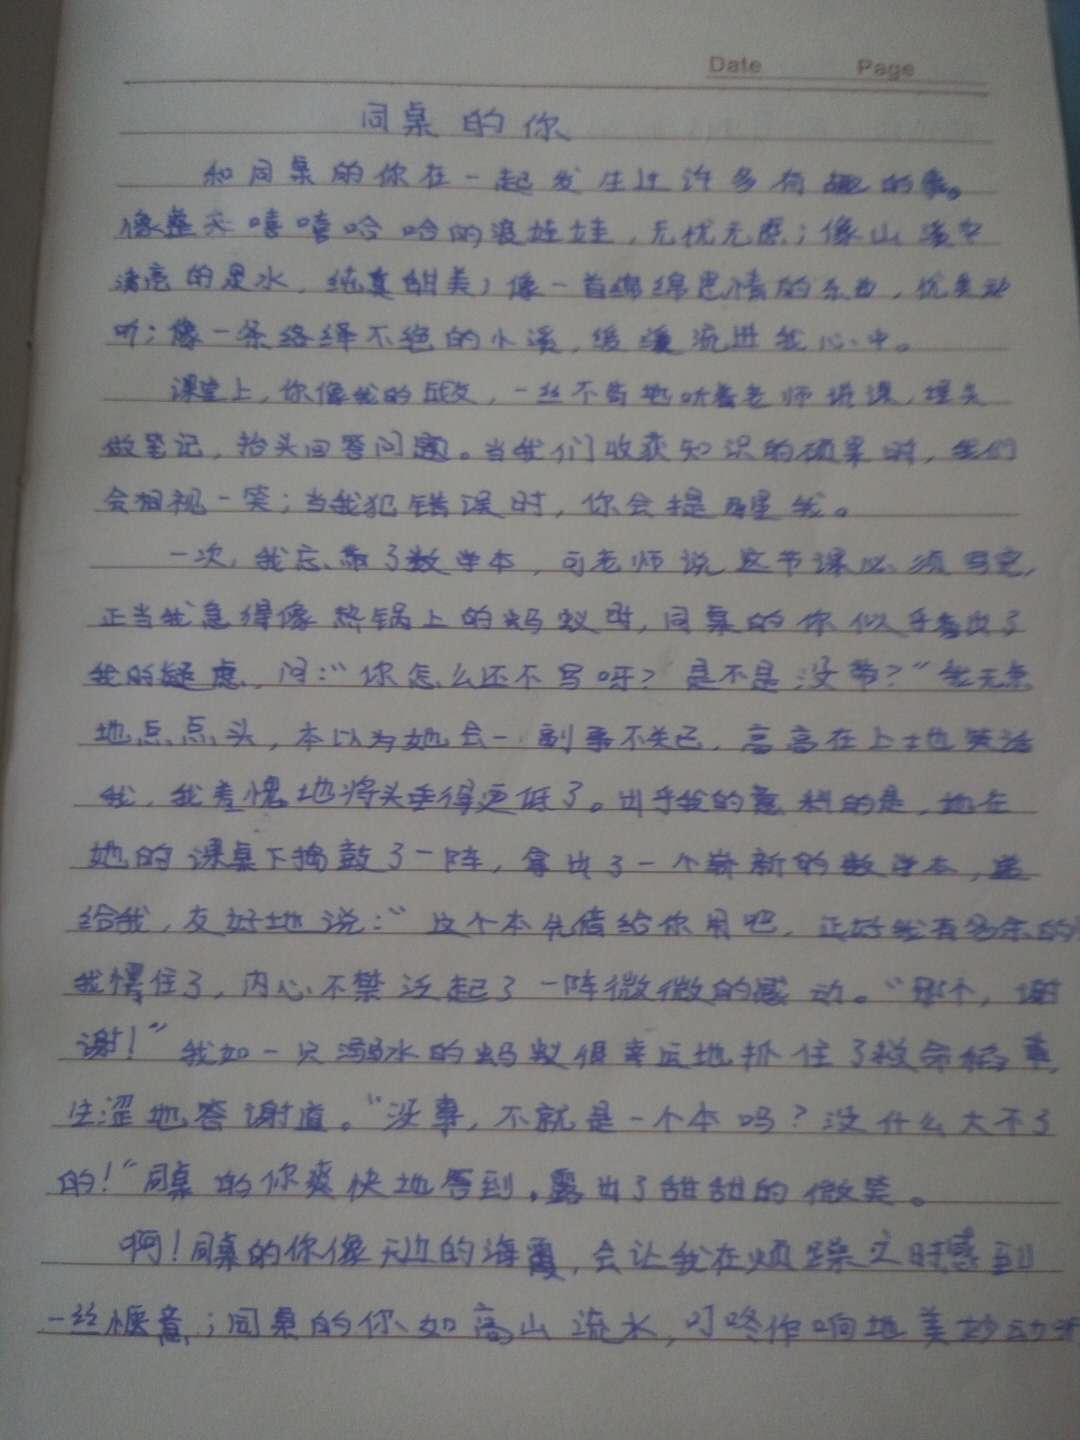 Date Page
同桌的你
和同桌的你在一起发生过许多有趣的事。
像整天嘻嘻哈哈的泥娃娃，无忧无虑；像山涧中
清亮的泉水，纯真甜美；像一首绵绵思情的乐曲，优美动
听；像一条络绎不绝的小溪，缓缓流进我心中。
课堂上，你像我的，一丝不苟地听着老师讲课，埋头
做笔记，抬头回答问题。当我们收获知识的硕果时，我们
会相视一笑；当我犯错误时，你会提醒我。
一次，我忘带了数学本，可老师说这节课必须写完，
正当我急得像热锅上的蚂蚁时，同桌的你似乎看出了
我的疑虑，问：“你怎么还不写呀？是不是没带？”我无奈
地点点头，本以为她会一副事不关己，高高在上地笑话
我，我羞愧地将头垂得更低了。出乎我的意料的是，她在
她的课桌下捣鼓了一阵，拿出了一个崭新的数学本，递
给我，友好地说：“这个本先借给你用吧，正好我有多余的
我愣住了，内心不禁泛起了一阵微微的感动。“那个，谢
谢！”我如一只溺水的蚂蚁很幸运地抓住了救命稻草，
生涩地答谢道。“没事，不就是一个本吗？没什么大不了
的！”同桌的你爽快地答到，露出了甜甜的微笑。
啊！同桌的你像天边的海霞，会让我在烦躁之时感到
一丝惬意；同桌的你如高山流水，叮咚作响地美妙动听